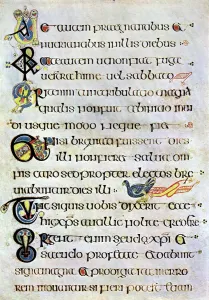 autem praegnatibus et
nutrientibus in illis diebus
autem ut non fiat fuga
uestra hieme uel sabbato
enim tribulatio magna
qualis non fuit ab initio mun
di usque modo neque fiet
nisi breuiati fuissent dies
illi non fieret salua om
nis caro sed propter electos bre
uiabuntur dies illi
si quis uobis dixerit ecce
hic xps aut illic nolite credere
Surgent enim seudo xpi et
seudo profetae et dabunt
signa magna et prodigia ita ut in er
rorem mittantur si fieri potest